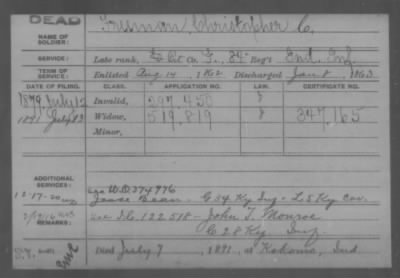 DEAD
NAME OF SOLDIER:
Truman, Christopher C.
SERVICE:
Late rank, Co. F, Reg't Ind. Inf.
TERM OF SERVICE:
Enlisted Aug. 14, 1862 Discharged Jan 8, 1863
DATE OF FILING. CLASS. APPLICATION NO. LAW. CERTIFICATE NO.
1879, July 12 Invalid, 297,450
1891 July 23 Widow, 519,819 347,165
Minor,
ADDITIONAL SERVICES:
W.O. 374976
12-17-20 Jesse Bean - G 54 Ky Inf - L 5 Ky Cav.
122518 - John T. Monroe
G 28 Ky Inf.
Died July 7, 1891, at Kokomo, Ind